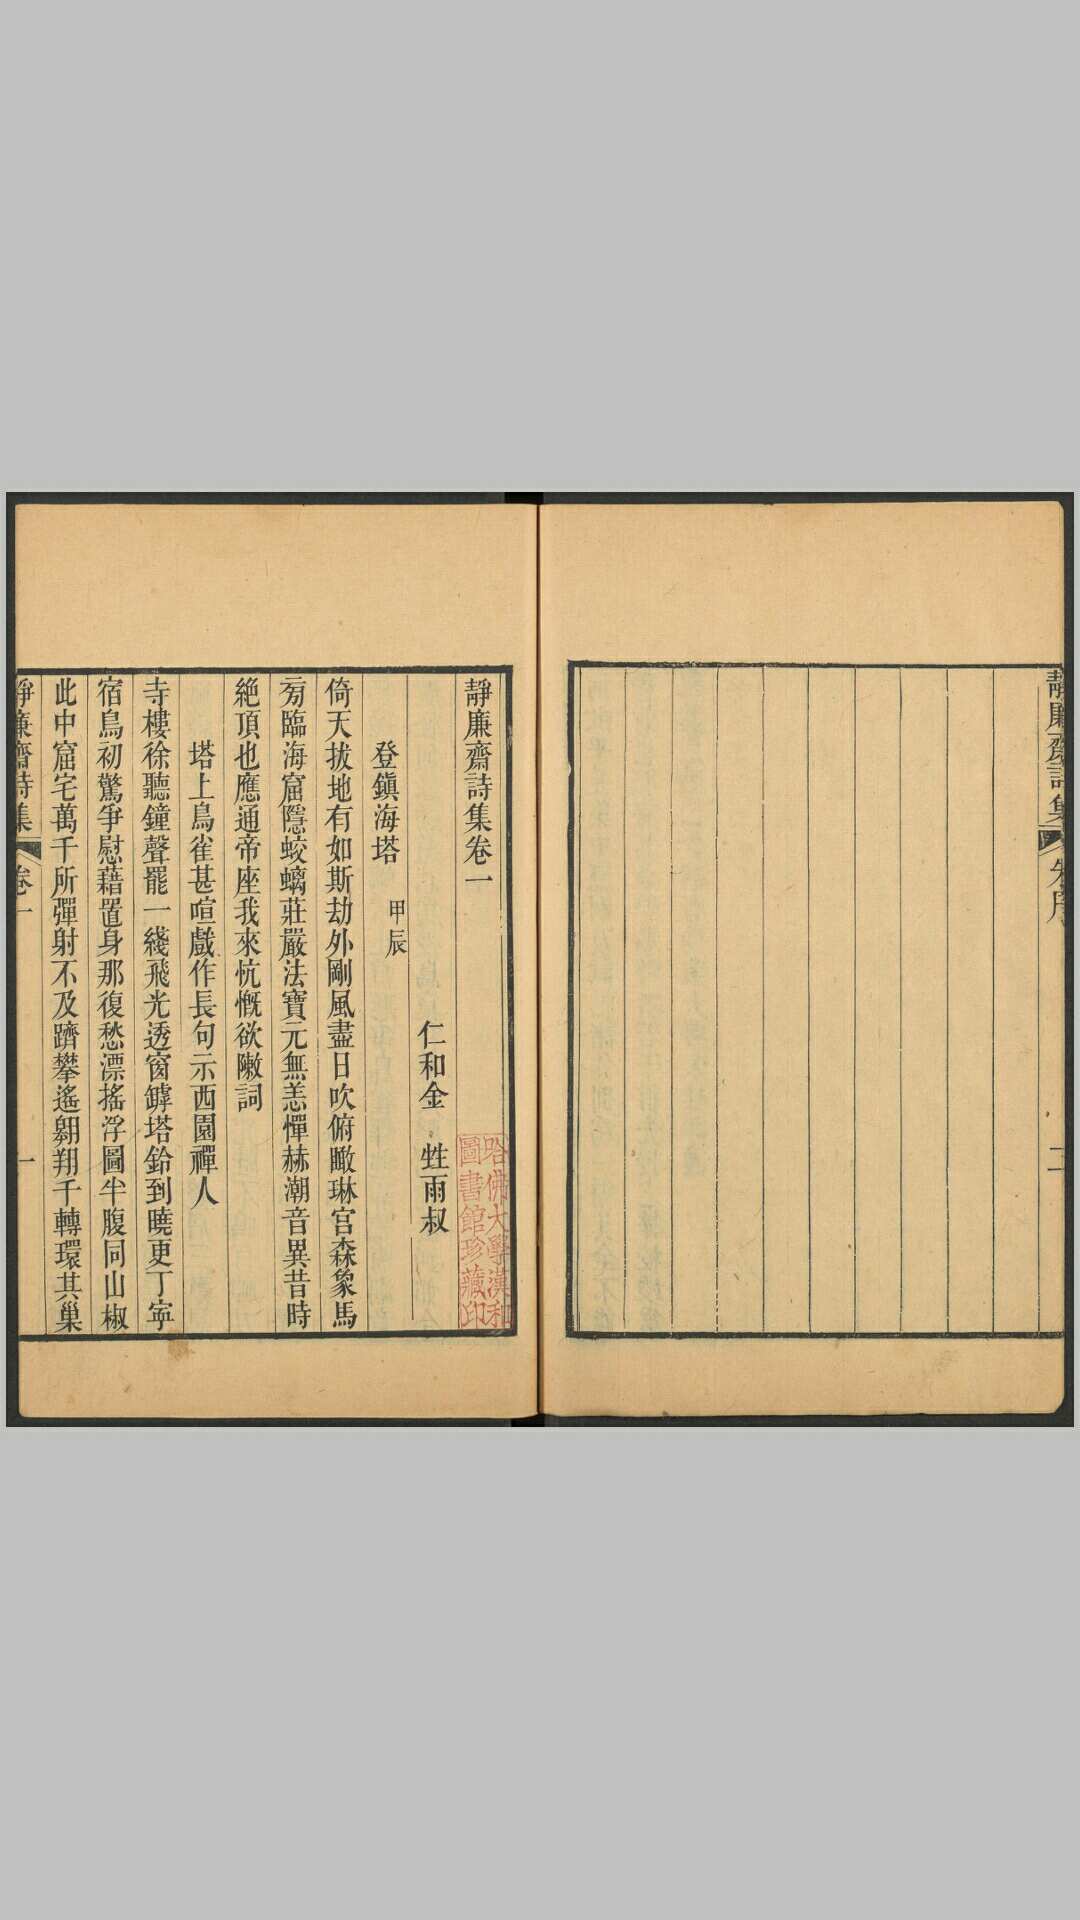 靜廉齋詩集
朱序
二
靜廉齋詩集卷一
仁和金 甡雨叔
登鎮海塔 甲辰
倚天拔地有如斯劫外剛風盡日吹俯瞰琳宮森象馬
旁臨海窟隱蛟螭莊嚴法寶元無恙憚赫潮音異昔時
絶頂也應通帝座我來忼慨欲陳詞
塔上鳥雀甚喧戲作長句示西園禪人
寺樓徐聽鐘聲罷一綫飛光透窗罅塔鈴到曉更丁寧
宿鳥初驚爭慰藉置身那復愁漂搖浮圖半腹同山椒
此中窟宅萬千所彈射不及躋攀遙翱翔千轉環其巢
靜廉齋詩集
卷一
一
哈佛大學漢和
圖書館珍藏印